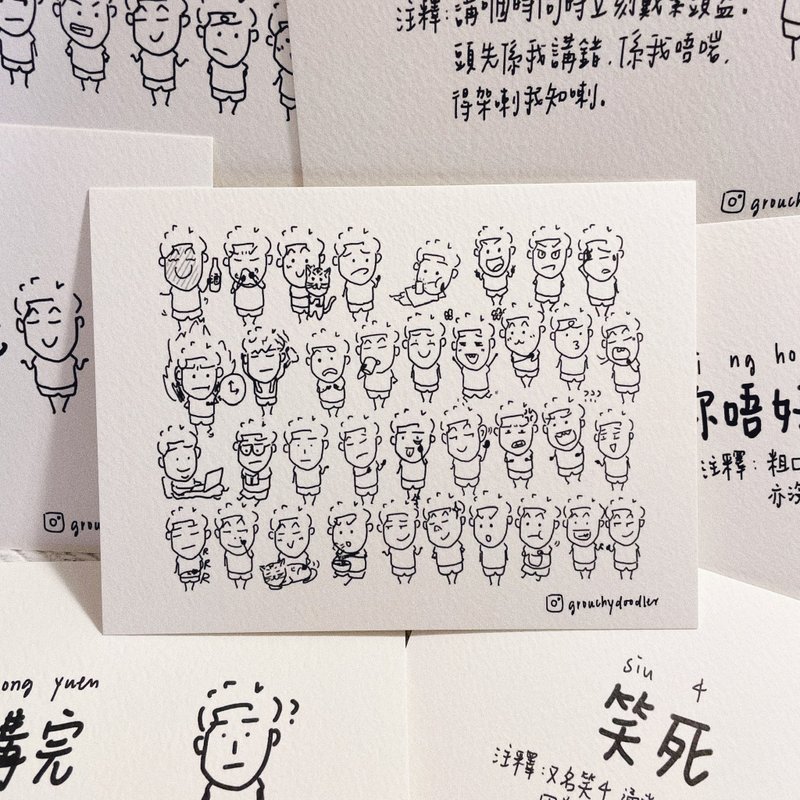 注釋:講呢個時同時立刻戴某頭盔。
頭先係我講錯,係我唔啱,
得架喇我知喇。
grouch
ng ho
你唔好
注釋:粗口
亦沒
???
RRR
grouchydoodler
grouch
ong yuen
講完
??
siu 4
笑死
注釋:又名笑4,讀